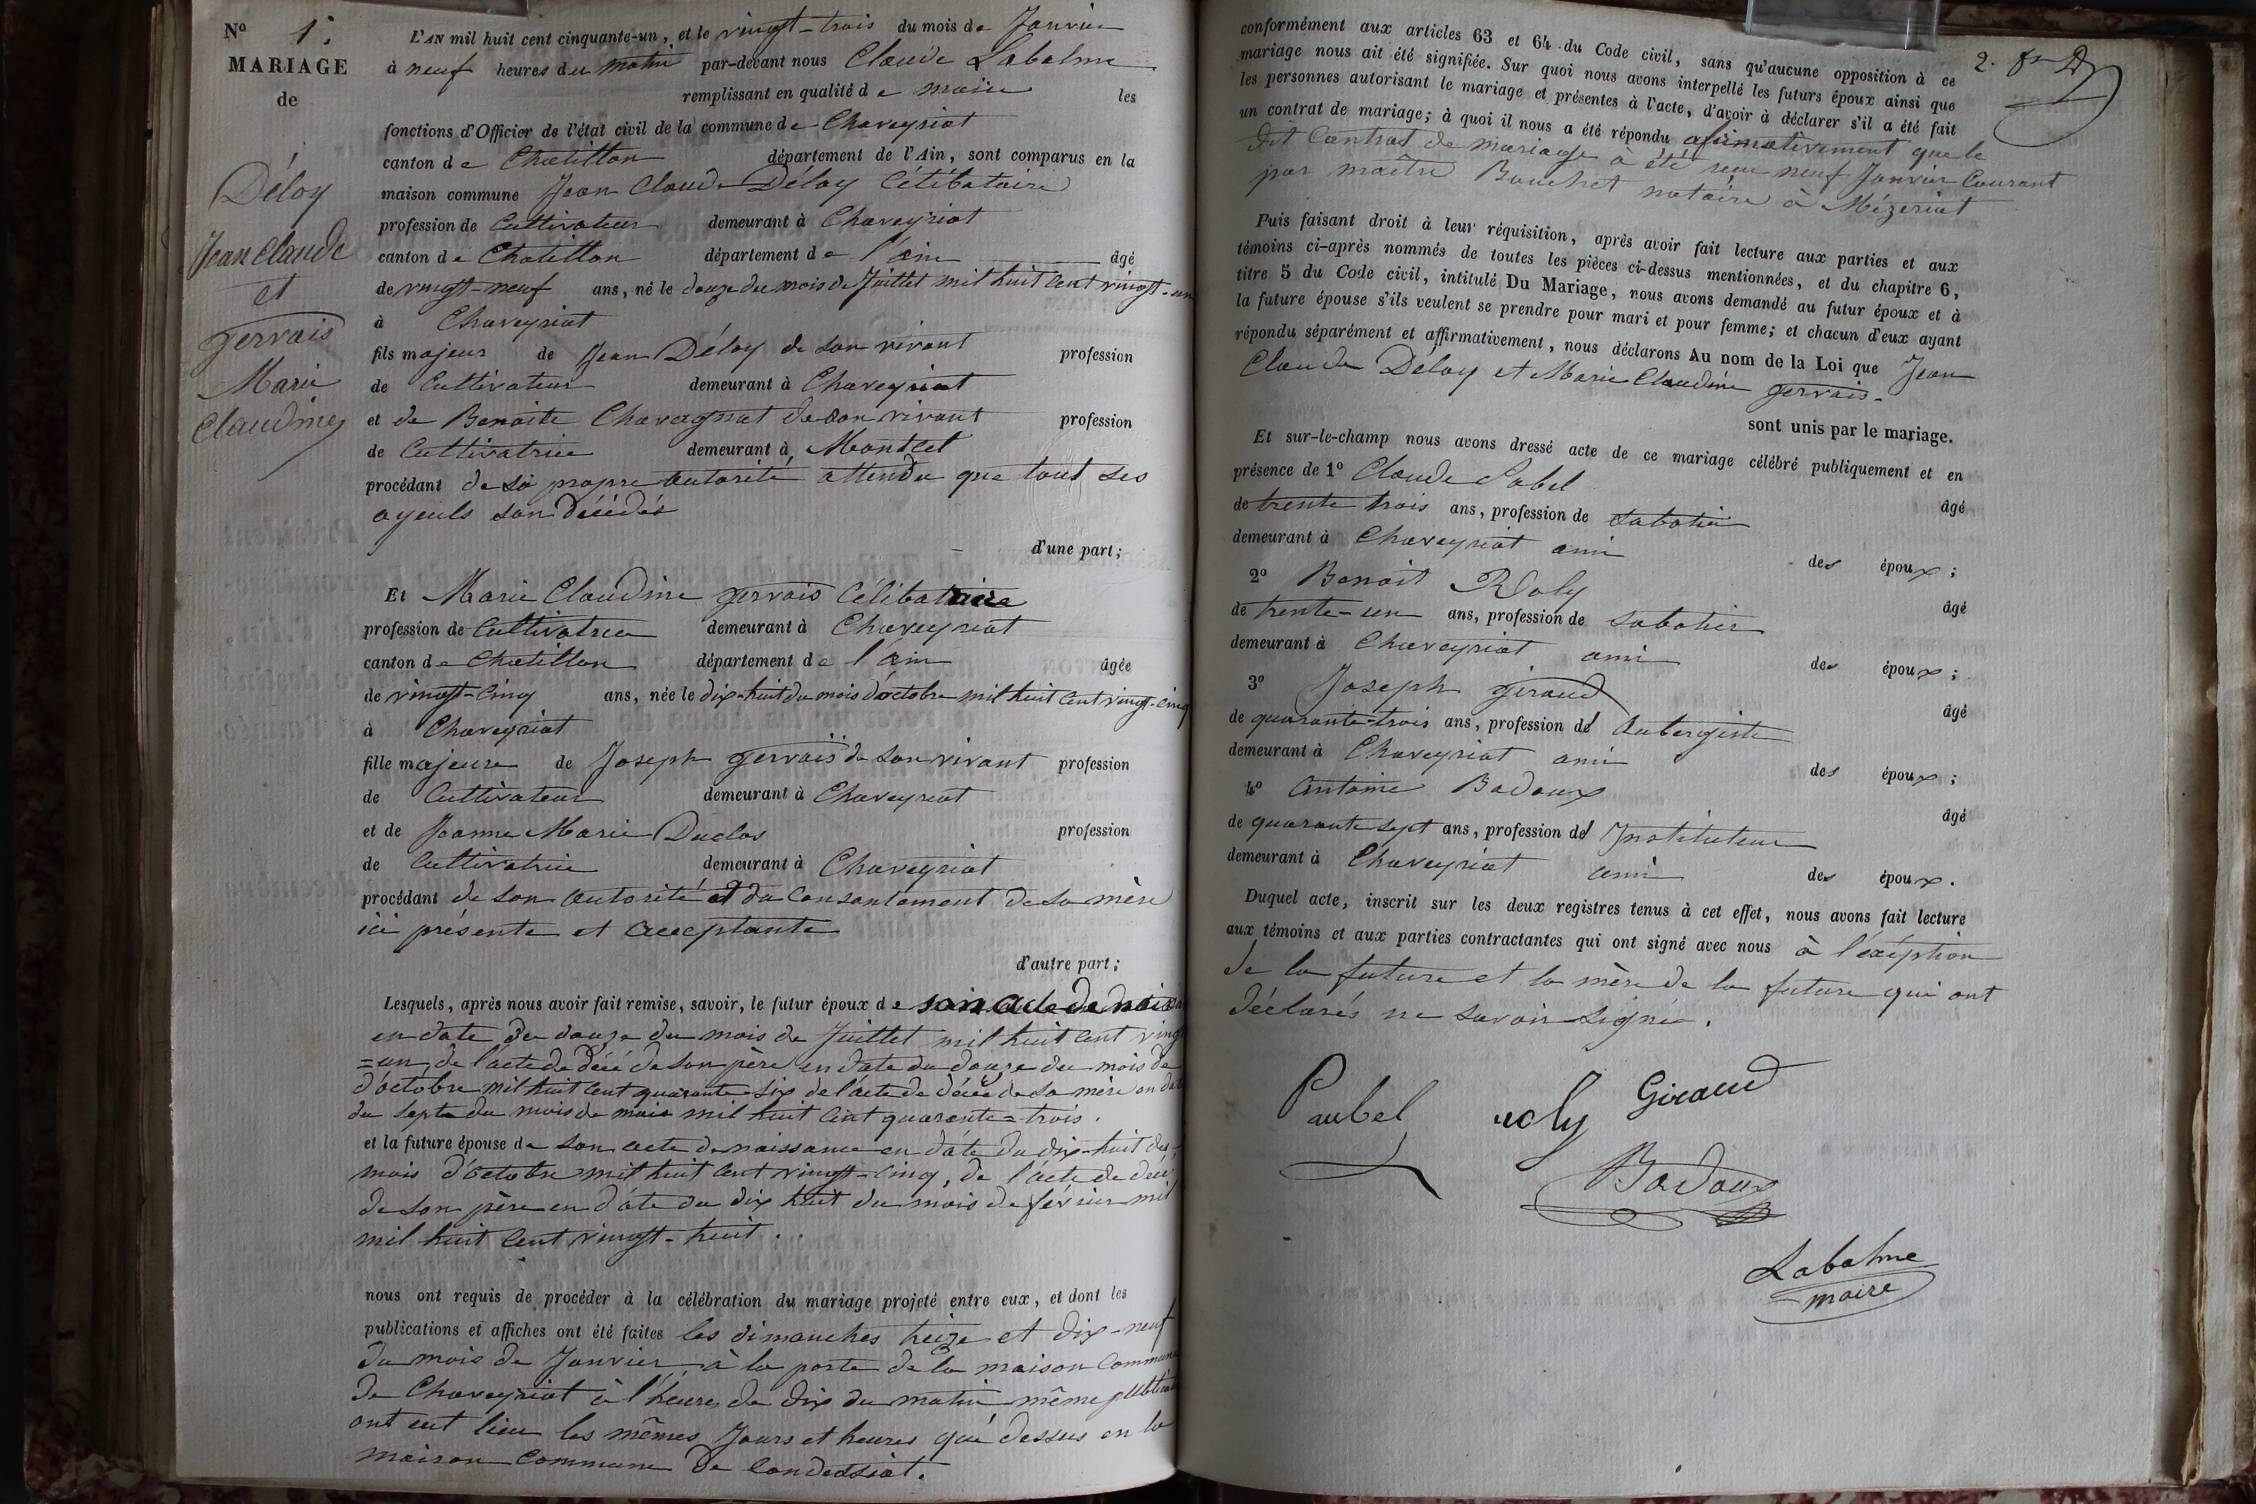 No 1.
MARIAGE
de
Déloy
Jean Claude
et
gervais
Marie
Claudine
L'AN mil huit cent cinquante-un, et le vingt-trois du mois de Janvier
à neuf heures du matin par-devant nous Claude Labalme
remplissant en qualité de maire les
fonctions d'Officier de l'état civil de la commune de Chaveyriat
canton de Chatillon département de l'Ain, sont comparus en la
maison commune Jean Claude Déloy Célibataire
profession de Cultivateur demeurant à Chaveyriat
canton de Chatillon département de l'ain âgé
de vingt-neuf ans, né le douze du mois de Juillet mil huit cent vingt-un
à Chaveyriat
fils majeur de Jean Déloy de son vivant profession
de Cultivateur demeurant à Chaveyriat
et de Benoite Chavagnat de son vivant profession
de Cultivatrice demeurant à Montcet
procédant de sa propre autorité attendu que tout ses
ayeuls son décédés
d'une part;
Et Marie Claudine gervais Célibataire
profession de Cultivatrice demeurant à Chaveyriat
canton de Chatillon département de l'ain âgée
de vingt-cinq ans, née le dix-huit du mois d'octobre mil huit cent vingt-cinq
à Chaveyriat
fille majeure de Joseph gervais de son vivant profession
de Cultivateur demeurant à Chaveyriat
et de Jeanne Marie Duclos profession
de Cultivatrice demeurant à Chaveyriat
procédant de son autorité et du consentement de sa mère
ici présente et acceptante
d'autre part;
Lesquels, après nous avoir fait remise, savoir, le futur époux de son acte de
en date du douze du mois de Juillet mil huit cent vingt
=un, de l'acte de décé de son père en date du douze du mois de
d'octobre mil huit cent quarante-six de l'acte de décée de sa mère en date
du sept du mois de mais mil huit cent quarante=trois.
et la future épouse de son acte de naissance en date du dix-huit du
mois d'octobre mil huit cent vingt-cinq, de l'acte de décé
de son père en date du dix huit du mois de février mil
mil huit cent vingt-huit.
nous ont requis de procéder à la célébration du mariage projeté entre eux, et dont les
publications et affiches ont été faites les dimanches treize et dix-neuf
du mois de Janvier à la porte de la maison Commune
de Chaveyriat à l'heure de dix du matin même
ont eut lieu les mêmes Jours et heures que dessus en la
maison commune de Condessiat.
2.
conformément aux articles 63 et 64 du Code civil, sans qu'aucune opposition à ce
mariage nous ait été signifiée. Sur quoi nous avons interpellé les futurs époux ainsi que
les personnes autorisant le mariage et présentes à l'acte, d'avoir à déclarer s'il a été fait
un contrat de mariage; à quoi il nous a été répondu afirmativement que le
dit Contrat de mariage a été reçu neuf Janvier Courant
par maître Bouchet notaire à Mézeriat
Puis faisant droit à leur réquisition, après avoir fait lecture aux parties et aux
témoins ci-après nommés de toutes les pièces ci-dessus mentionnées, et du chapitre 6,
titre 5 du Code civil, intitulé Du Mariage, nous avons demandé au futur époux et à
la future épouse s'ils veulent se prendre pour mari et pour femme; et chacun d'eux ayant
répondu séparément et affirmativement, nous déclarons Au nom de la Loi que Jean
Claude Déloy et Marie Claudine gervais.
sont unis par le mariage.
Et sur-le-champ nous avons dressé acte de ce mariage célébré publiquement et en
présence de 1º Claude Pabel
âgé
de trente trois ans, profession de Sabotier
demeurant à Chaveyriat ami des époux;
2º Benoit Roly
âgé
de trente-un ans, profession de Sabotier
demeurant à Chaveyriat ami des époux;
3º Joseph giraud
âgé
de quarante-trois ans, profession d' Aubergiste
demeurant à Chaveyriat ami des époux;
4º Antoine Badoux
âgé
de quarante sept ans, profession d' Instituteur
demeurant à Chaveyriat ami des époux.
Duquel acte, inscrit sur les deux registres tenus à cet effet, nous avons fait lecture
aux témoins et aux parties contractantes qui ont signé avec nous à l'éxéption
de la future et la mère de la future qui ont
déclarés ne savoir signé.
Paubel roly Giraud
Badoux
Labalme
maire